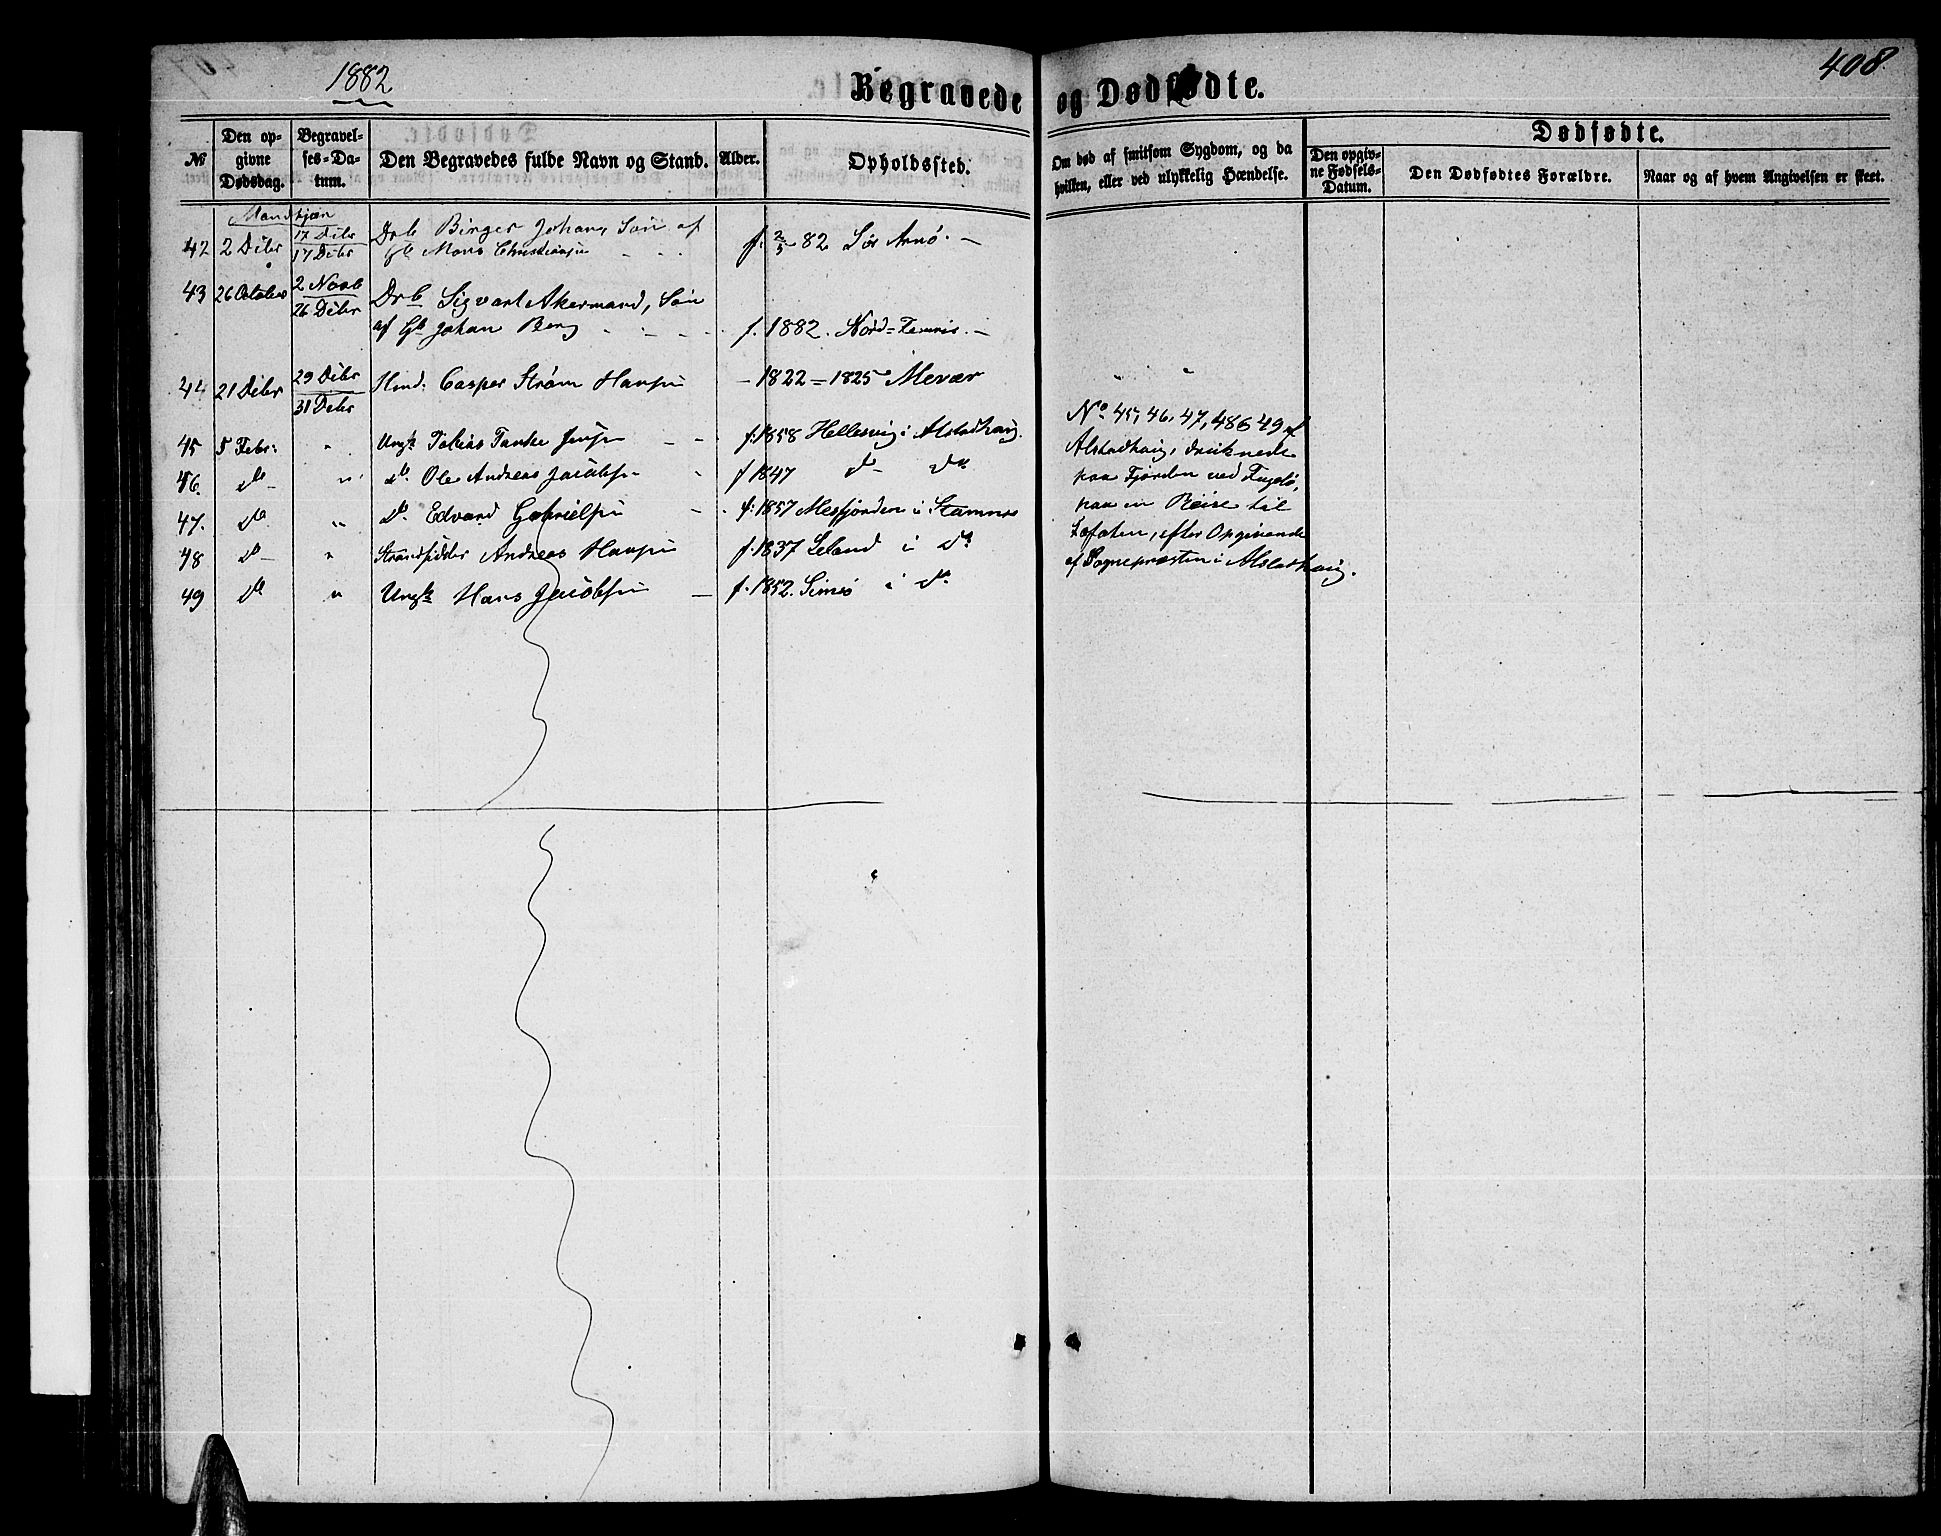 1882
408
Begravede og Dødfødte.
№
Den op-
givne
Dødsdag.
Begravel-
ses-Da-
tum.
Den Begravedes fulde Navn og Stand.
Alder.
Opholdssted.
Om død af smitsom Sygdom, og da
hvilken, eller ved ulykkelig Hændelse.
Dødfødte.
Den opgiv-
ne Fødsels-
Datum.
Den Dødfødtes Forældre.
Naar og af hvem Angivelsen er skeet.
Mandkjøn
42 2 Debr 17 Debr Drb Birger Johan, Søn af
17 Debr Gb Mons Christiansen f. 2/5 82 Sør Arnø. —
43 26 October 2 Novb Drb Sigvart Akermand, Søn
26 Debr
af Gb Johan Berg f. 1882. Nord-
44 21 Debr 29 Debr Casper Strøm Hansen — 1822 = 1825 Mevær
31 Debr
45 5 Febr: " Ungk Tobias Tanke Jensen f: 1858 i Alstadhaug.
46. do " do Ole Andreas Jacobsen f 1847 do do
47. do " do Edvard Gabrielsen f: 1857 i Stamnes
48 do " Strandsidder Andreas Hansen f. 1837 Leland i do
49 do " Ungk Hans Jacobsen f. 1852. i do
No 45, 46, 47, 48 & 49 af
Alstadhaug, druknede
paa Fjorden ved Fugelø,
paa en Reise til
Lofoten, efter Opgivende
af Sognepræsten i Alstadhaug.